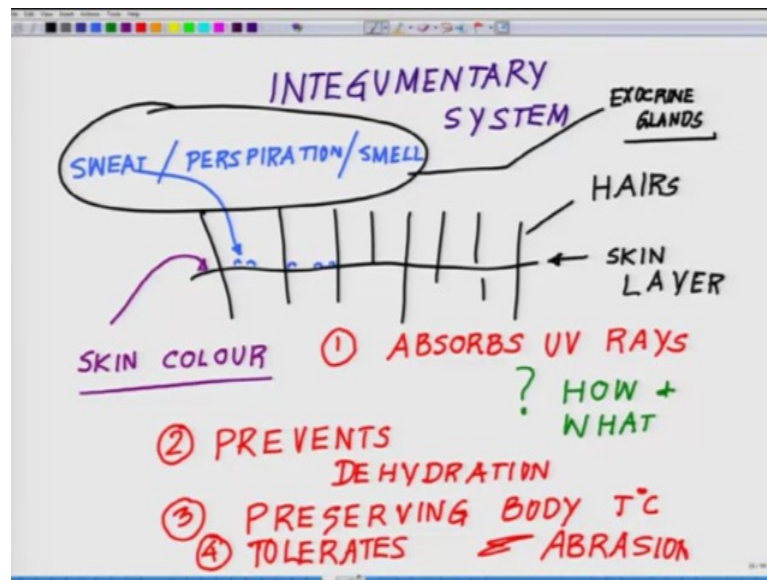 INTEGUMENTARY
SYSTEM
EXOCRINE
GLANDS
SWEAT / PERSPIRATION / SMELL
HAIRS
SKIN
LAYER
SKIN COLOUR
① ABSORBS UV RAYS
? HOW +
WHAT
② PREVENTS
DEHYDRATION
③ PRESERVING BODY T°C
④ TOLERATES ABRASION